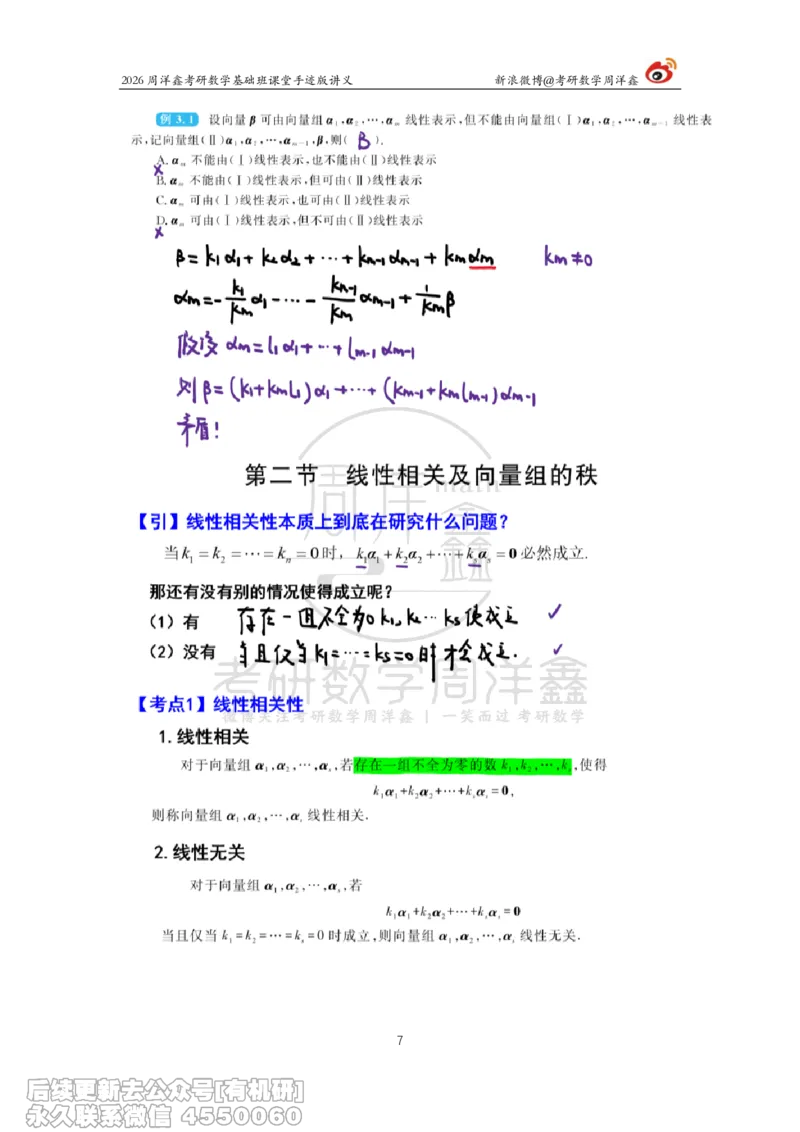 2026 周洋鑫考研数学基础班课堂手迹版讲义 新浪微博@考研数学周洋鑫
例 3.1 设向量 β 可由向量组 α₁,α₂,⋯,αₘ 线性表示,但不能由向量组(Ⅰ)α₁,α₂,⋯,αₘ₋₁ 线性表
示,记向量组(Ⅱ)α₁,α₂,⋯,αₘ₋₁,β,则( B ).
A. αₘ 不能由(Ⅰ)线性表示,也不能由(Ⅱ)线性表示
B. αₘ 不能由(Ⅰ)线性表示,但可由(Ⅱ)线性表示
C. αₘ 可由(Ⅰ)线性表示,也可由(Ⅱ)线性表示
D. αₘ 可由(Ⅰ)线性表示,但不可由(Ⅱ)线性表示
β = k₁α₁ + k₂α₂ + ⋯ + kₘ₋₁αₘ₋₁ + kₘαₘ kₘ ≠ 0
αₘ = -k₁/kₘ α₁ - ⋯ - kₘ₋₁/kₘ αₘ₋₁ + 1/kₘ β
假设 αₘ = l₁α₁ + ⋯ + lₘ₋₁αₘ₋₁
则 β = (k₁+kₘl₁)α₁ + ⋯ + (kₘ₋₁+kₘlₘ₋₁)αₘ₋₁
矛盾!
第二节 线性相关及向量组的秩
【引】线性相关性本质上到底在研究什么问题?
当 k₁ = k₂ = ⋯ = kₙ = 0 时, k₁α₁ + k₂α₂ + ⋯ + kₙαₙ = 0 必然成立.
那还有没有别的情况使得成立呢?
(1) 有 存在一组不全为0 k₁,k₂⋯kₛ使成立 ✓
(2) 没有 当且仅当 k₁=⋯=kₛ=0 时才会成立. ✓
考研数学周洋鑫
【考点1】线性相关性
微博关注考研数学周洋鑫 | 一笑而过 考研数学
1. 线性相关
对于向量组 α₁,α₂,⋯,αₛ,若存在一组不全为零的数 k₁,k₂,⋯,kₛ,使得
k₁α₁+k₂α₂+⋯+kₛαₛ=0,
则称向量组 α₁,α₂,⋯,αₛ 线性相关.
2. 线性无关
对于向量组 α₁,α₂,⋯,αₛ,若
k₁α₁+k₂α₂+⋯+kₛαₛ=0
当且仅当 k₁=k₂=⋯=kₛ=0 时成立,则向量组 α₁,α₂,⋯,αₛ 线性无关.
7
后续更新去公众号[有机研]
永久联系微信 4550060